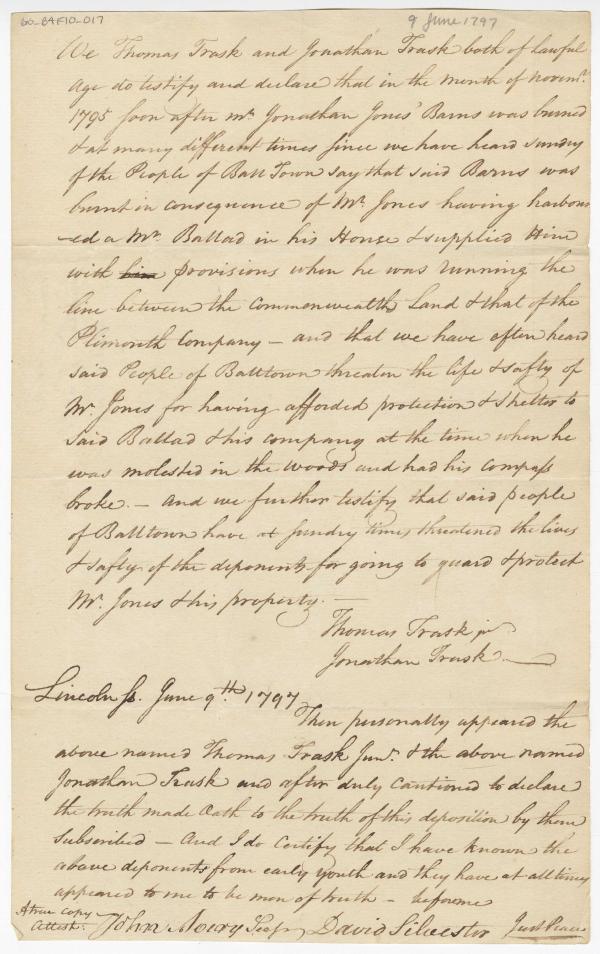 60-B4F10-017
9 June 1797
We Thomas Trask and Jonathan Trask both of lawful
age do testify and declare that in the month of Novemr.
1795 soon after Mr. Jonathan Jones' Barns was burned
& at many different times since we have heard sundry
of the People of Ball Town say that said Barns was
burnt in consequence of Mr. Jones having harbour
-ed a Mr. Ballad in his House & supplied Him
with him provisions when he was running the
line between the Commonwealths Land & that of the
Plimouth Company — and that we have often heard
said People of Balltown threaten the life & safty of
Mr. Jones for having afforded protection & shelter to
said Ballad & his company at the time when he
was molested in the woods and had his compass
broke. — And we further testify that said people
of Balltown have at sundry times threatened the lives
& safty of the deponents for going to guard & protect
Mr. Jones & his property. —
Thomas Trask jr
Jonathan Trask
Lincoln ss. June 9th. 1797
Then personally appeared the
above named Thomas Trask Junr. & the above named
Jonathan Trask and after duly cautioned to declare
the truth made Oath to the truth of this deposition by them
Subscribed — And I do certify that I have known the
above deponents from early youth and they have at all times
appeared to me to be men of truth — before me
A true copy
Attest. John Avery Secy David Silvester Just Peace